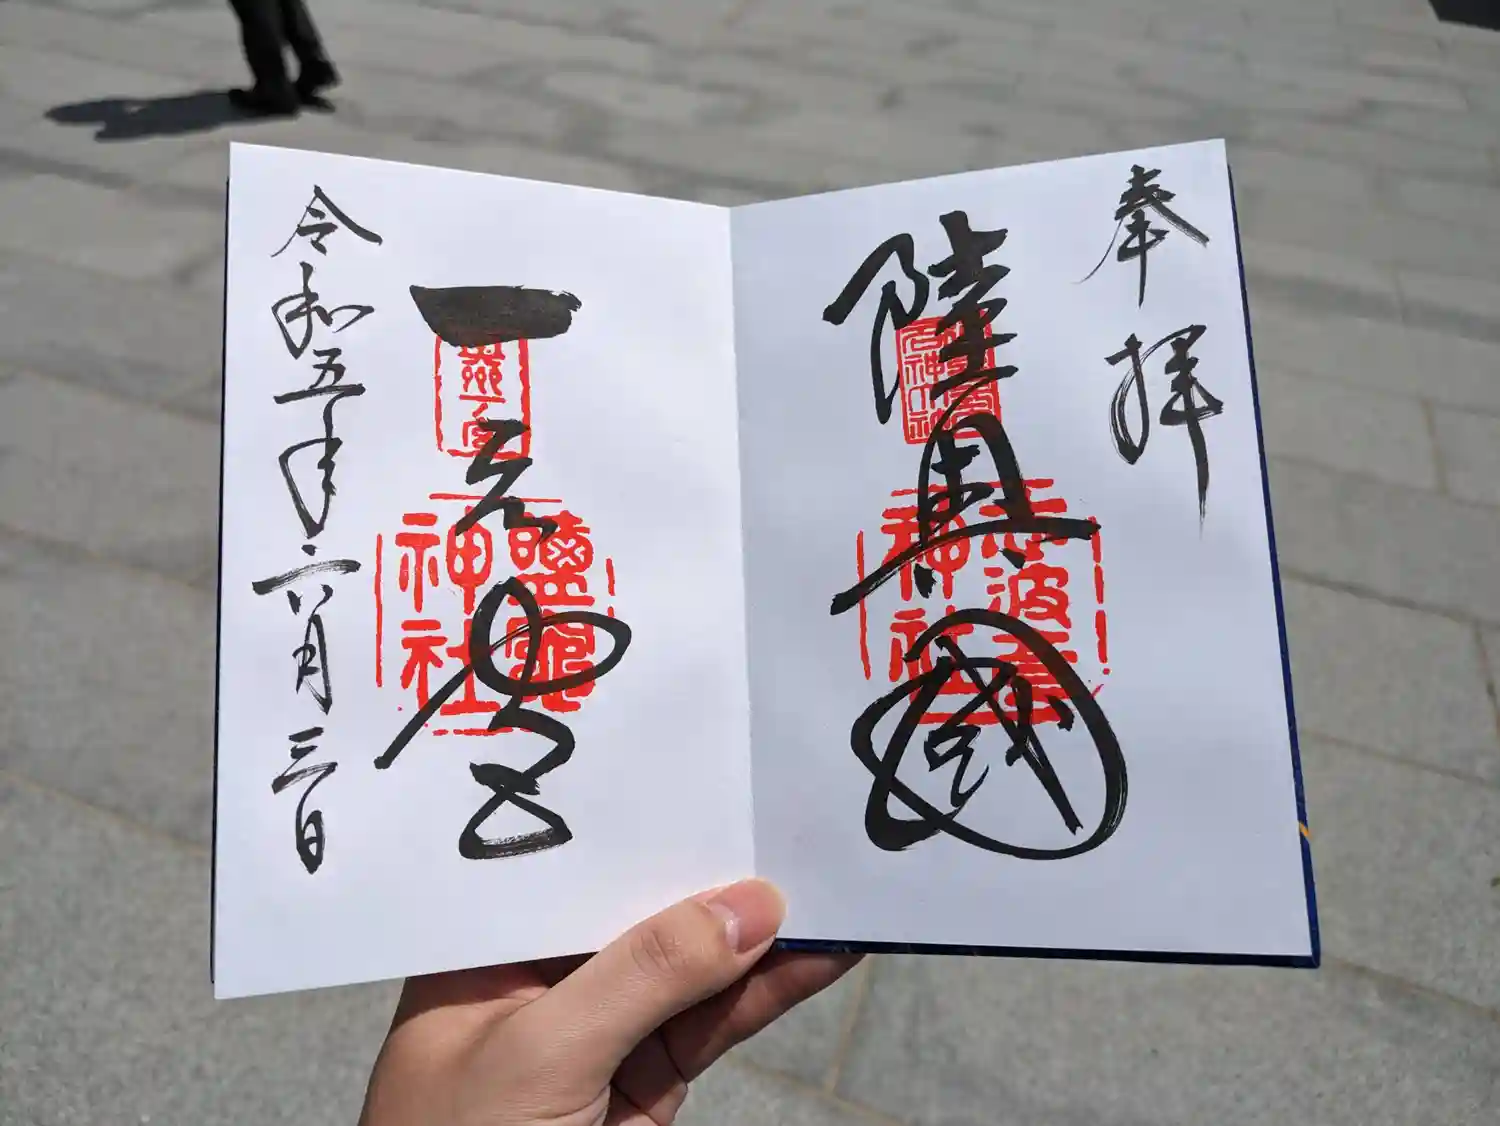 奉拝
陸奥國
志波彦
神社
一之宮
鹽竈
神社
令和五年六月三日